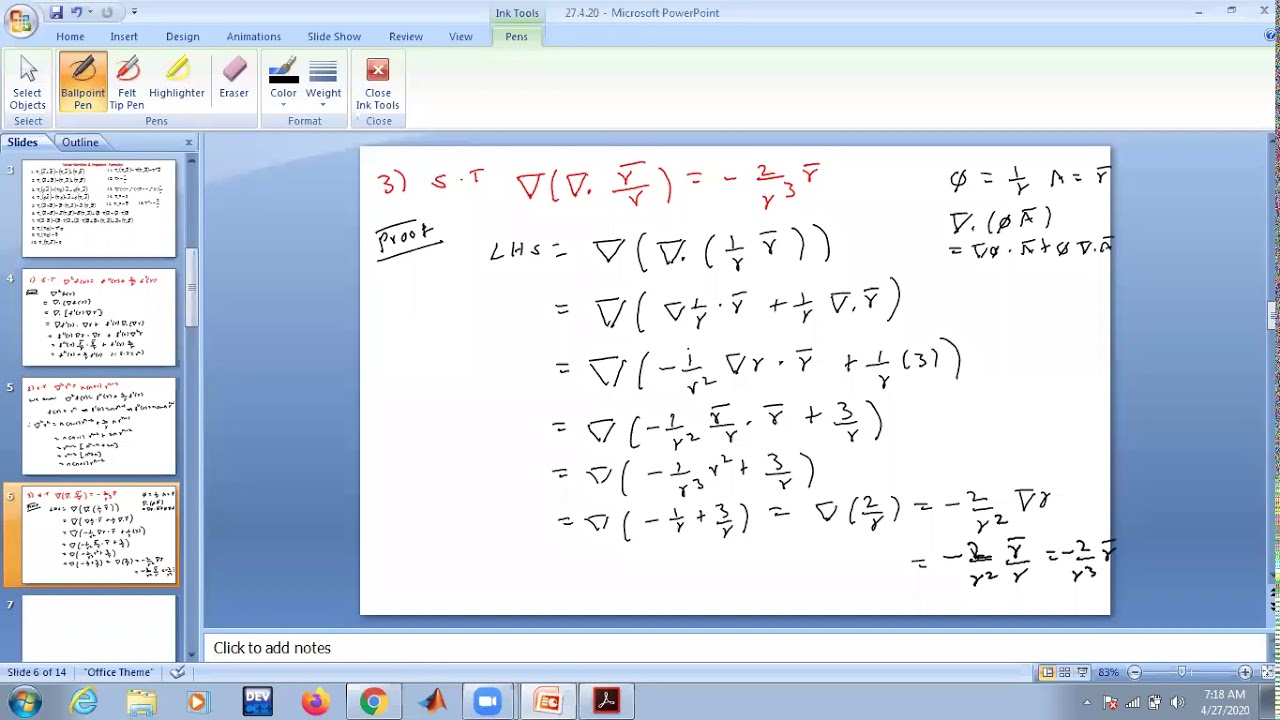 Ink Tools
27.4.20 - Microsoft PowerPoint
Home Insert Design Animations Slide Show Review View Pens
Select Objects
Ballpoint Pen
Felt Tip Pen
Highlighter
Eraser
Color
Weight
Close Ink Tools
Select Pens Format Close
Slides Outline
3
4
5
6
7
3) S.T ∇(∇. r̅/r) = - 2/r³ r̅
φ = 1/r A = r̅
∇. (φ A̅)
= ∇φ . A̅ + φ ∇. A̅
Proof
LHS = ∇(∇. (1/r r̅))
= ∇(∇ 1/r . r̅ + 1/r ∇. r̅)
= ∇(- 1/r² ∇r . r̅ + 1/r (3))
= ∇(- 1/r² r̅/r . r̅ + 3/r)
= ∇(- 1/r³ r² + 3/r)
= ∇(- 1/r + 3/r) = ∇(2/r) = - 2/r² ∇r
= - 2/r² r̅/r = - 2/r³ r̅
Click to add notes
Slide 6 of 14 "Office Theme" 83%
DEV C++
7:18 AM
4/27/2020